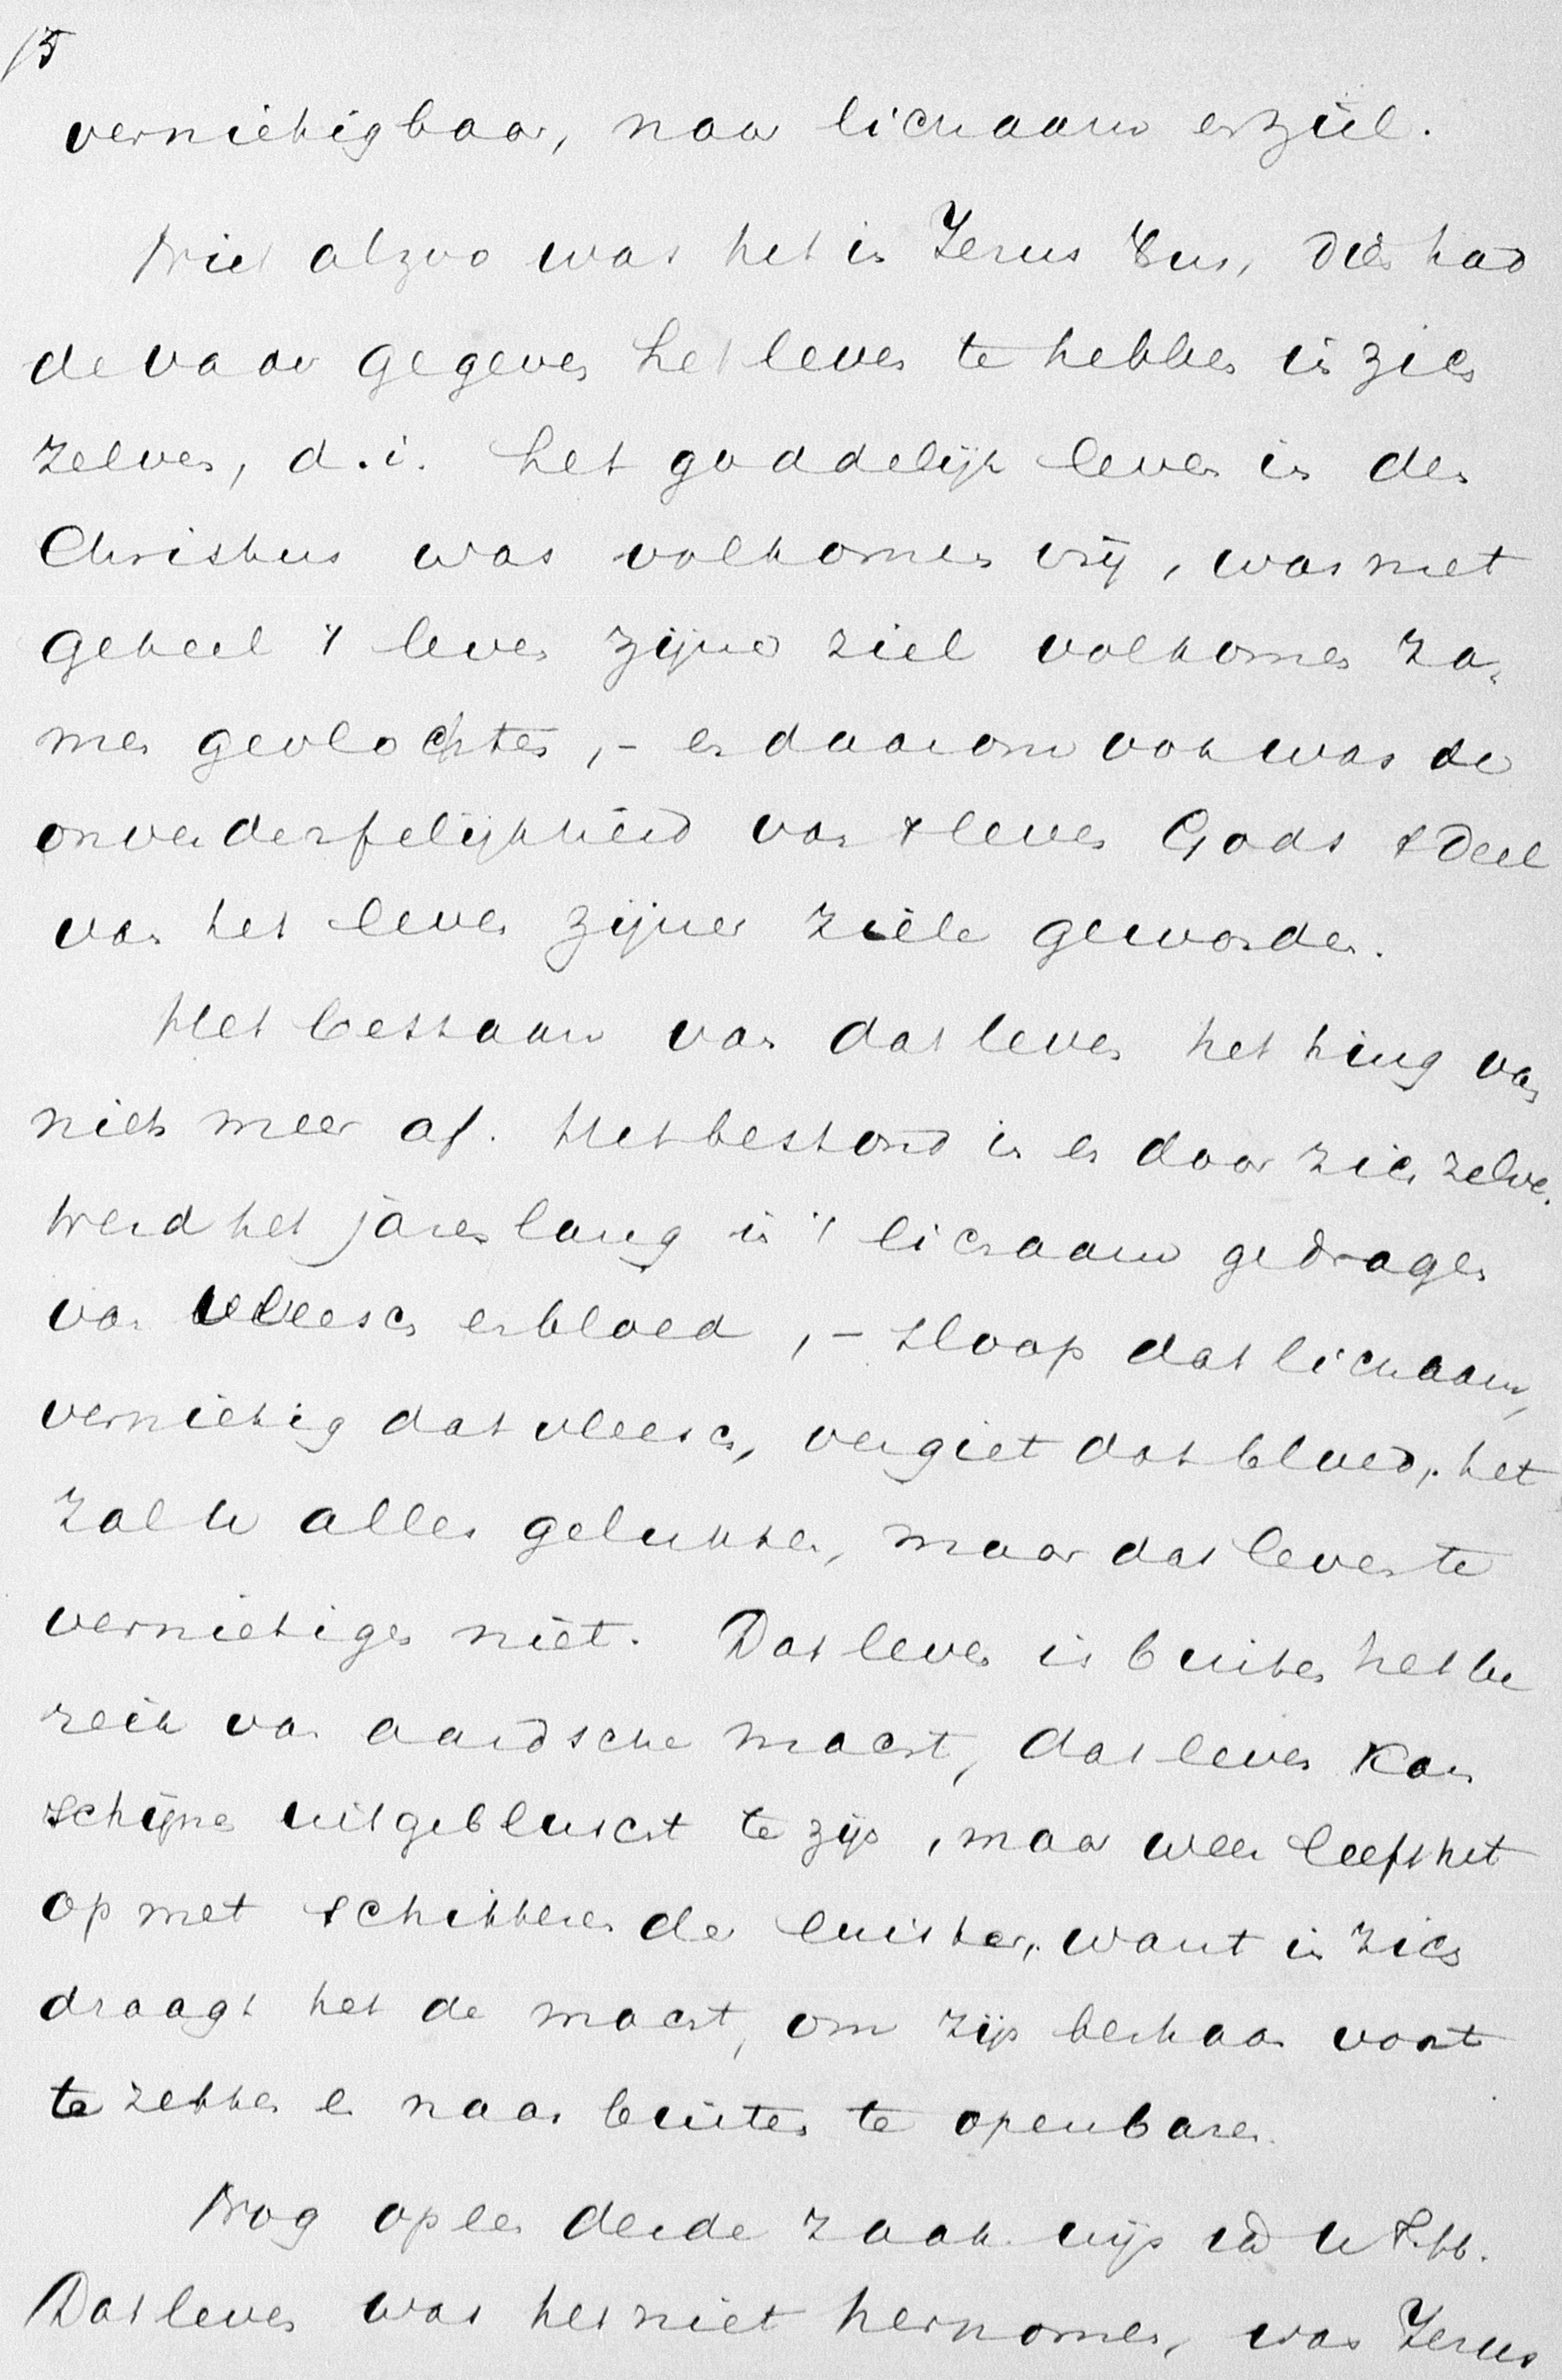 15
vernietigbaar, naar lichaam en ziel.
Niet alzoo was het in Jezus Chus, Dien had
de vader gegeven het leven te hebben in zich
zelven, d.i. het goddelijk leven in den
Christus was volkomen vrij, was met
geheel 't leven zijner ziel volkomen za-
men gevlochten, - en daarom ook was de
onverderfelijkheid van 't leven Gods 't deel
van het leven zijner ziele geworden.
Het bestaan van dat leven het hing van
niets meer af. Het bestond in en door zich zelve.
Werd het jaren lang in 't lichaam gedragen
van vleesch en bloed, - sloop dat lichaam,
vernietig dat vleesch, vergiet dat bloed, het
zal u alles gelukken, maar dat leven te
vernietigen niet. Dat leven is buiten het be
reik van aardsche macht, dat leven kan
schijnen uitgebluscht te zijn, maar weer leeft het
op met schitterende luister, want in zich
draagt het de macht, om zijn bestaan voort
te zetten en naar buiten te openbaren.
Nog op een derde zaak wijs ik u
Dat leven was het niet hernomen, was Jezus